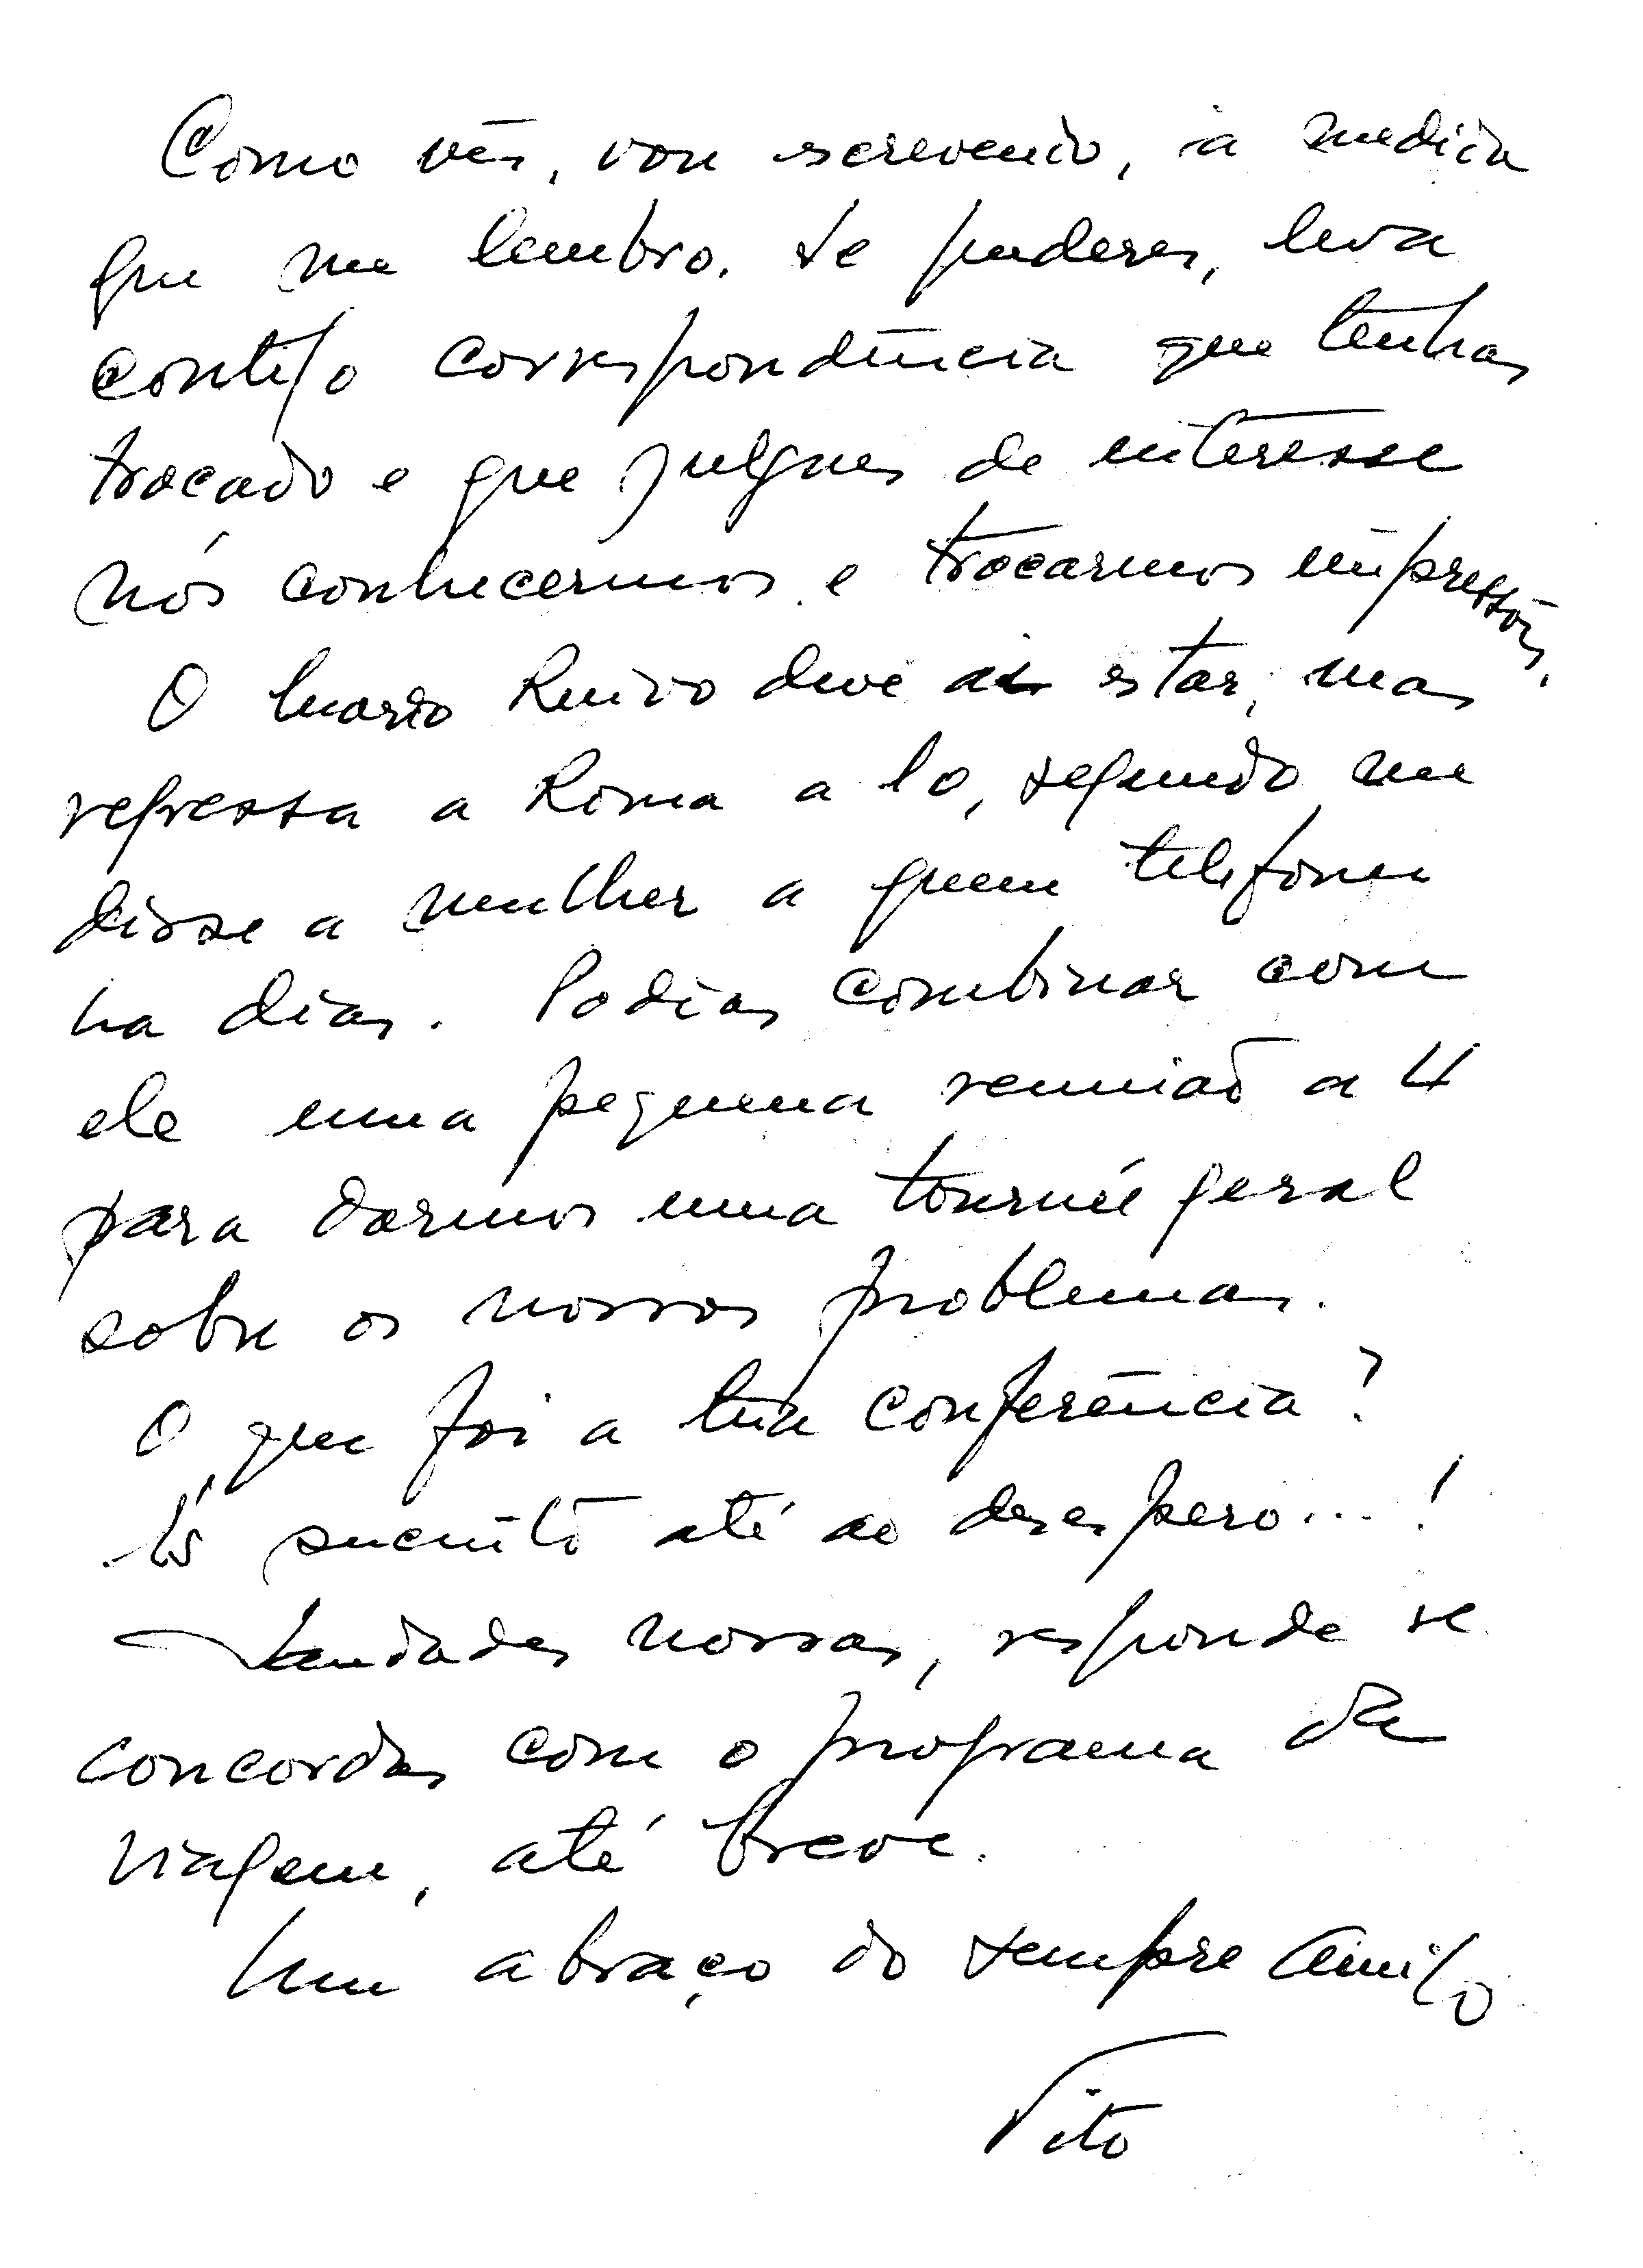 Como vês, vou escrevendo, à medida
que me lembro. Se puderes, leva
contigo correspondência que tenhas
trocado e que julgues de interesse
nós conhecermos e trocarmos impressões.
O Mario Ruivo deve aí estar, mas
regressa a Roma a 10, segundo me
disse a mulher a quem telefonei
ha dias. Podias combinar com
ele uma pequena reunião a 4
para darmos uma tournée geral
sobre os nossos problemas.
O que foi a tua conferência?
És sucinto até ao desespero...!
Saudades nossas, responde se
concordas com o programa da
viagem, até breve.
Um abraço do sempre amigo
Tito